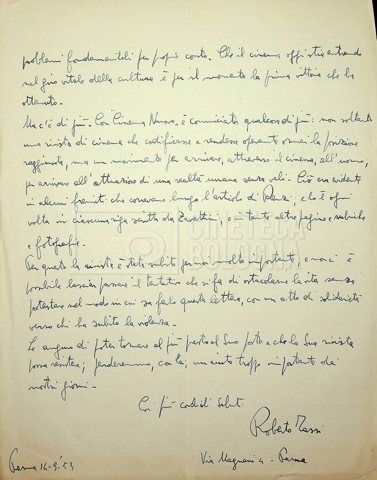 problemi fondamentali per proprio conto. Che il cinema oggi stia entrando
nel giro vitale della cultura è per il momento la prima vittoria che ha
ottenuto.
Ma c'è di più. Con Cinema Nuovo è cominciato qualcosa di più: non soltanto
una rivista di cinema che codificasse e rendesse operante ormai la posizione
raggiunta, ma un movimento per arrivare, attraverso il cinema, all'uomo,
per arrivare all' di una realtà umana senza veli. Ciò era evidente
in alcuni fremiti che correvano lungo l'articolo di Renzi, e lo è ogni
volta in ciascuna riga scritta da Zavattini, e in tante altre pagine e rubriche
e fotografie.
Per questo la rivista è stata subito per noi molto importante, e non è
possibile lasciar passare il tentativo che si fa di ostacolarne la vita senza
protestare nel modo in cui so farlo questa lettera, con un atto di solidarietà
verso chi ha subito la violenza.
Le auguro di poter tornare al più presto al Suo posto e che la Sua rivista
possa resistere; perderemmo, con lei, un aiuto troppo importante dei
nostri giorni.
Coi più cordiali saluti
Roberto Tassi
Parma 14.9.53
Via Magnani 4 - Parma
CINETECA
BOLOGNA